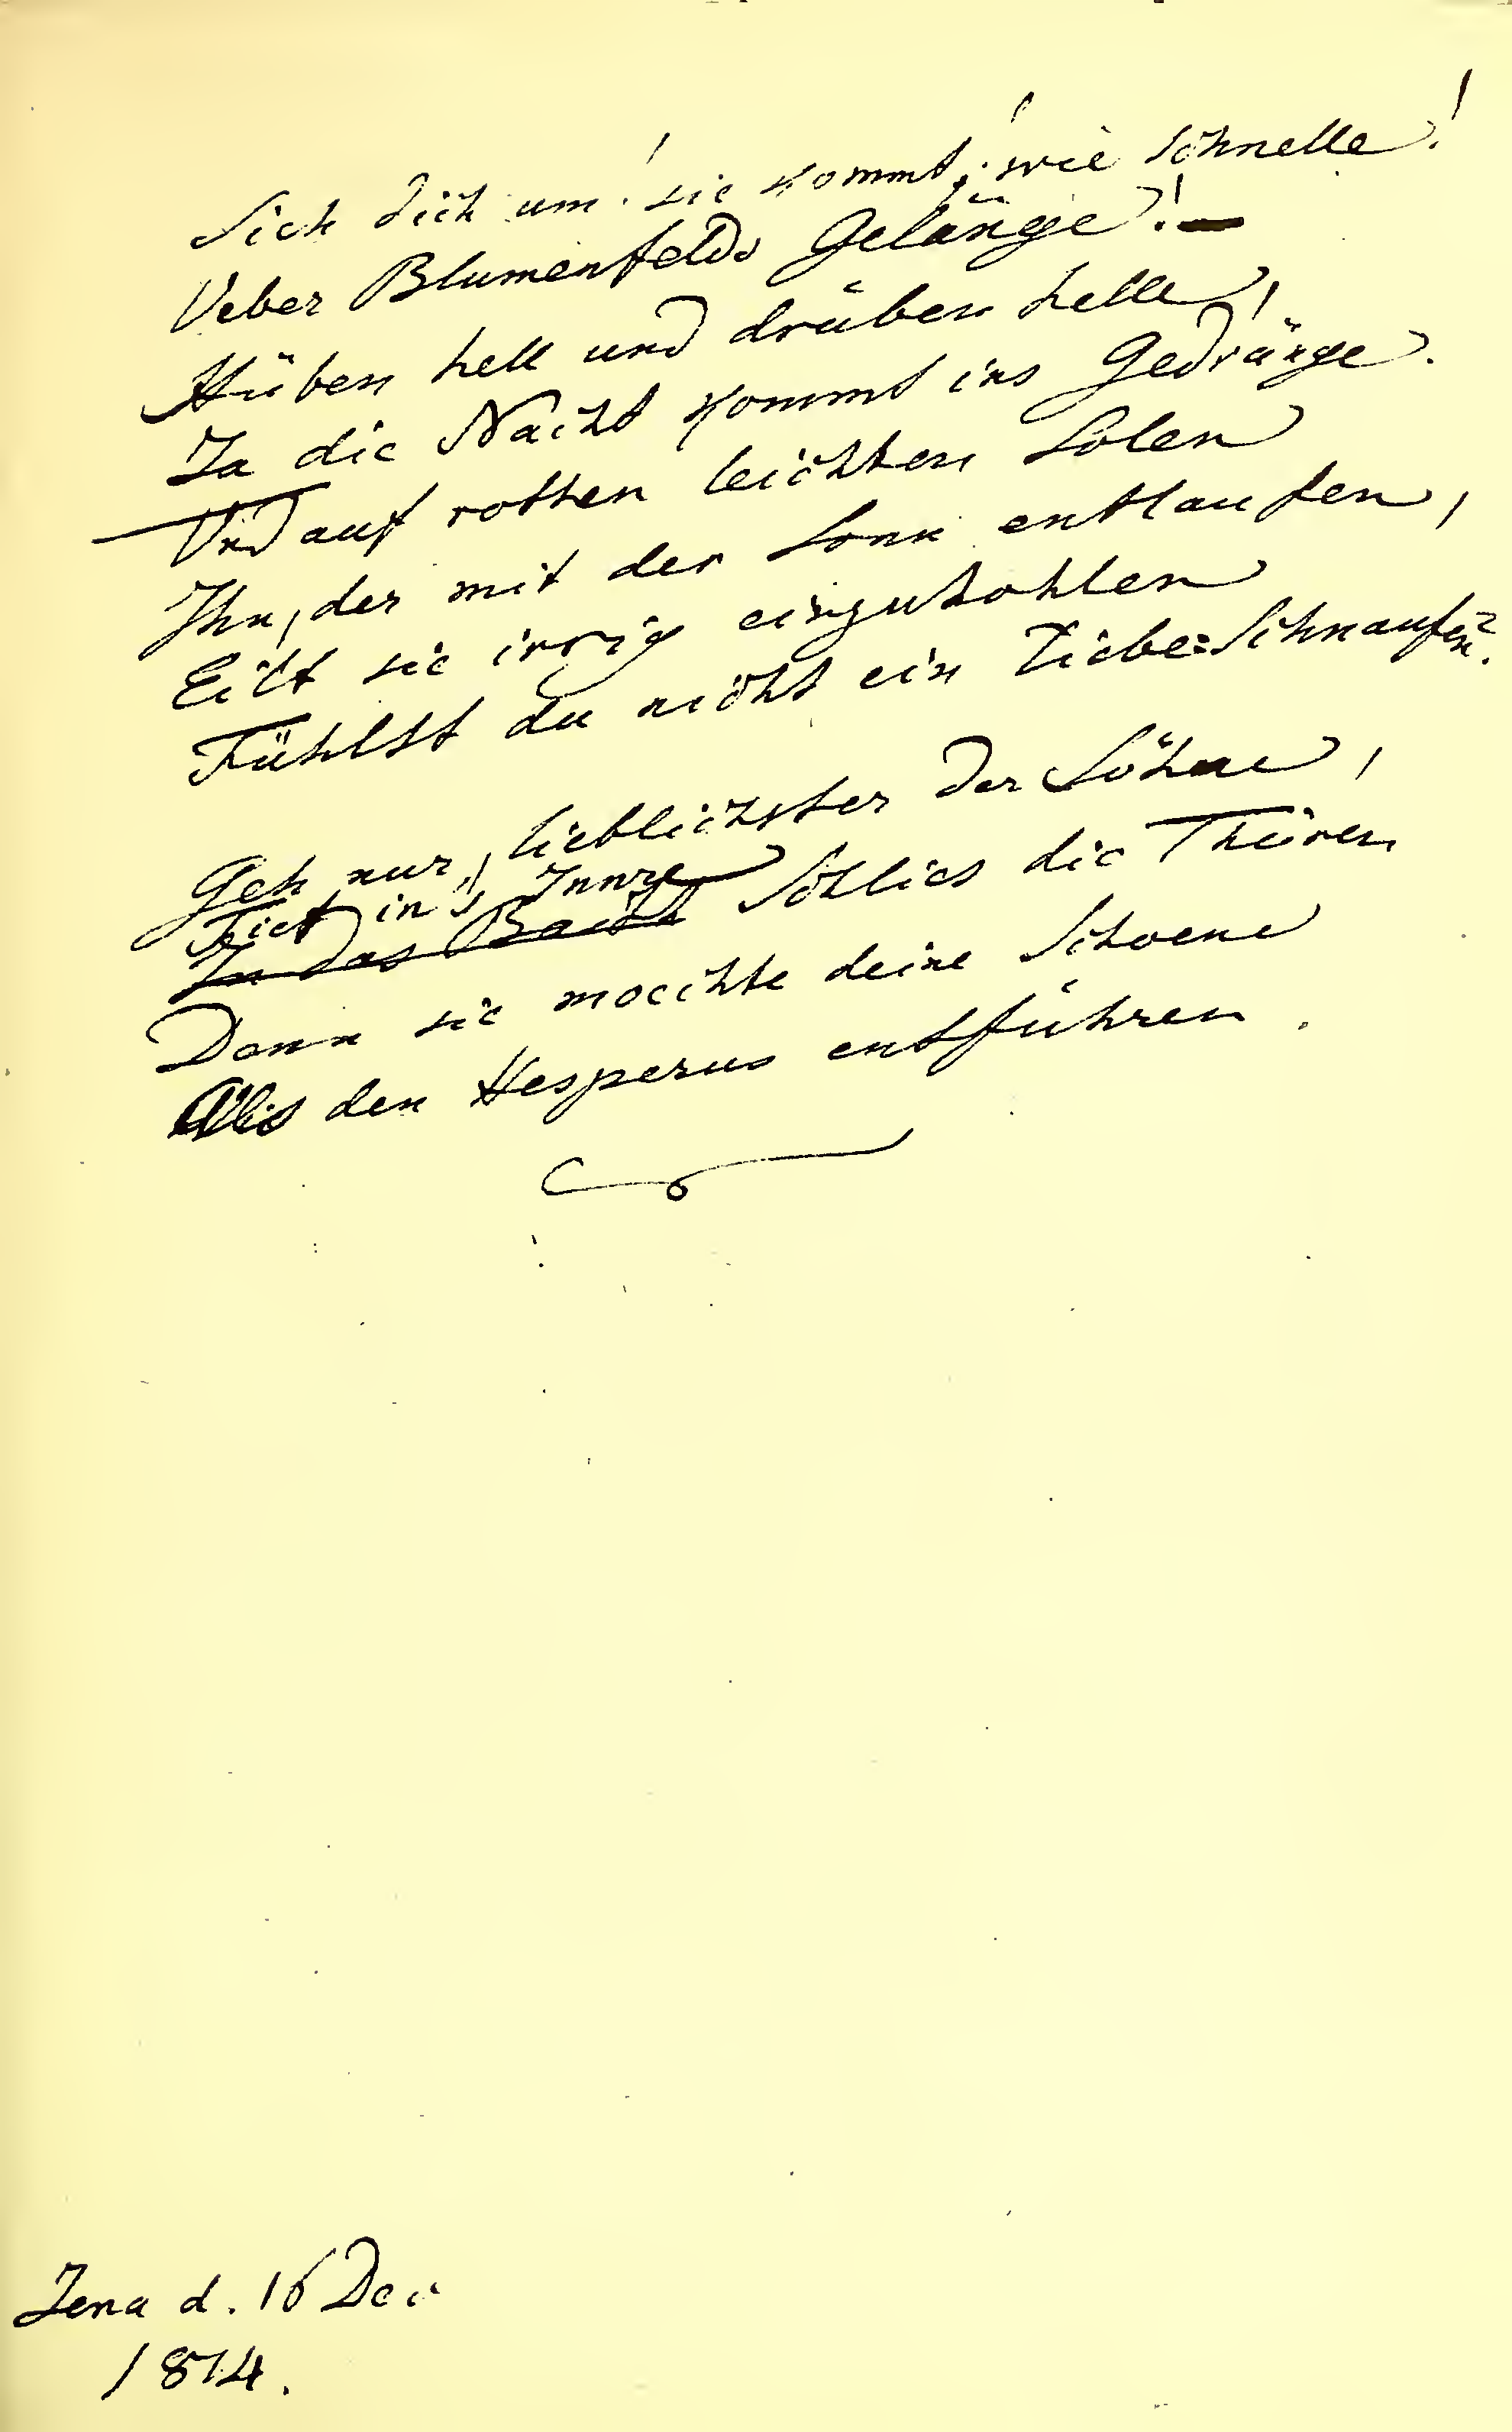 Sieh dich um! sie kommt! wie schnelle!
Ueber Blumenfelds Gelänge!—
Hüben hell und drüben helle!
Ja die Nacht kommt ins Gedränge.
Und auf rothen leichten Solen
Ihn, der mit der Sonn entlaufen,
Eilt sie irrig einzuhohlen
Fühlst du nicht ein Liebe=Schnaufen?
Geh nur, lieblichster der Söhne,
Tief in's Innre
In das Bacht schlies die Thüren
Denn sie moechte deine Schoene
Als den Hesperus entführen.
Jena d. 16 Dec
1814.